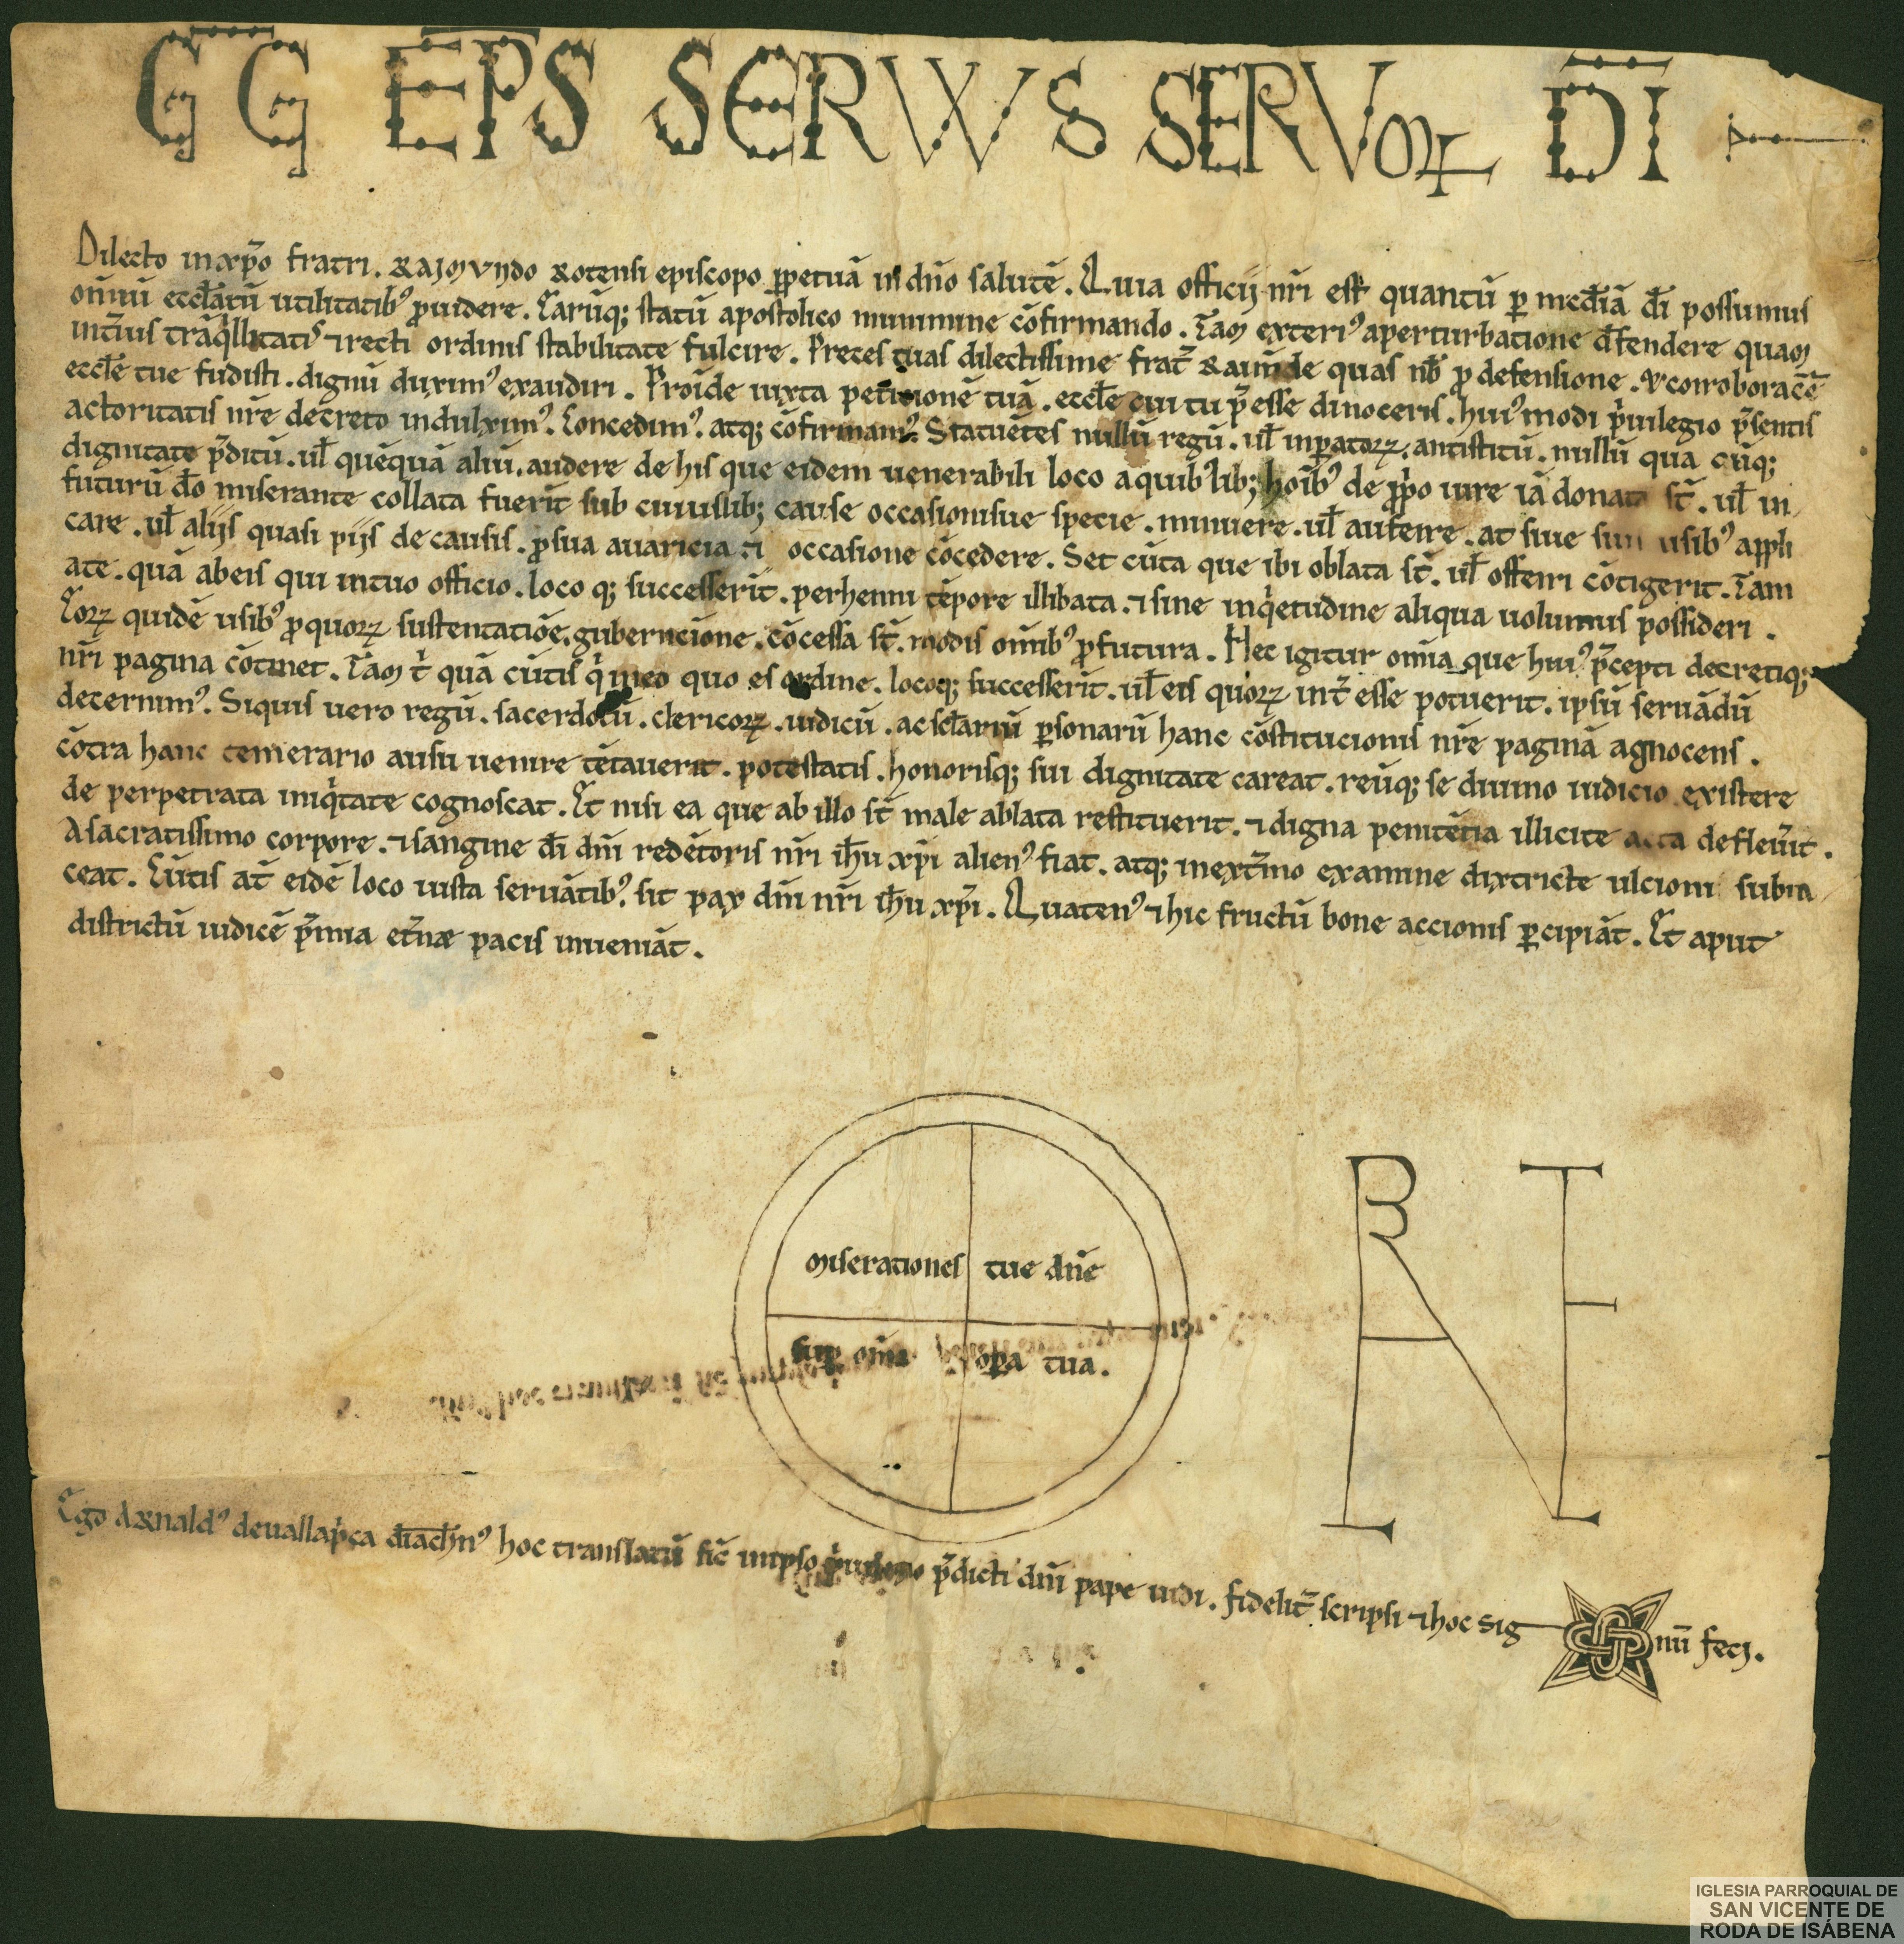 GG EPS SERVVS SERVOꝝ DI
Dilecto in xp̄o fratri. RAIMVNDO Rotensi episcopo ꝑpetuā in dn̄o salutē. Quia officij nr̄i est quantū ꝑ med̄iā d̄i possumus
om̄iū eccl̄arū utilitatibꝰ ꝓuidere. Earūq; statū apostolico munimine cōfirmando. Tam exteriꝰ a perturbatione d̄fendere quam
int̄ius trāq̓llitatis ⁊ recti ordinis stabilitate fulcire. Preces tuas dilectissime frat̄ Raim̄de quas nb̄ ꝓ defensione. & corroborac̄ē
eccl̄e tue fudisti. dignū duximꝰ exaudiri. Proīde iuxta peticionē tuā. eccl̄e cui tu p̄esse dinoceris. huiꝰmodi p̓uilegio p̄sentis
actoritatis nr̄e decreto indulximꝰ. Concedimꝰ. atq; cōfirmamꝰ. Statuētes nullū regū. ul̄ inꝑatorꝝ. antistitū. nullū qua cūq;
dignitate p̄ditū. ul̄ quēquā aliū. audere de his que eidem uenerabili loco a quibꝰlib; hoībꝰ de ꝓp̓o iure iā donata st̄. ul̄ in
futurū d̄o miserante collata fuerīt sub cuiuslib; cause occasionisue specie. minuere. ul̄ auferre. at siue suis usibꝰ appli
care. ul̄ alijs quasi pijs de causis. ꝓ sua auaricia ⁊ occasione cōcedere. Set cūta que ibi oblata st̄. ul̄ offerri cōtigerit. Tam
a te. quā ab eis qui in tuo officio. loco q; successerīt. perhenni tēpore illibata. ⁊ sine inq̓etudine aliqua uolumus possideri.
Eorꝝ quidē usibꝰ ꝓ quorꝝ sustentatiōe. gubernacione. cōcessa st̄. modis om̄ibꝰ ꝓfutura. Hec igitur om̄ia que huiꝰ p̄cepti decretiq;
nr̄i pagina cōtinet. Tam t̓ quā cūtis q̓ in eo quo es ordine. locoq; successerīt. ul̄ eis quorꝝ int̄esse potuerit. ipsū seruādū
decernimꝰ. Siquis uero regū. sacerdotū. clericorꝝ. iudicū. ac scl̄ariū ꝑsonarū hanc cōstitucionis nr̄e paginā agnocens.
cōtra hanc temerario ausu uenire tētauerit. potestatis. honorisq; sui dignitate careat. reūq; se diuino iudicio existere
de perpetrata iniq̓tate cognoscat. Et nisi ea que ab illo st̄ male ablata restituerit. ⁊ digna penitētia illicite acta defleu̓it.
A sacratissimo corpore. ⁊ sangine d̄i dn̄i redētoris nr̄i ih̄u xp̄i alienꝰ fiat. atq; in ext̄mo examine dixtricte ulcioni subia
ceat. Cūtis at̄ eidē loco iusta seruātibꝰ. sit pax dn̄i nr̄i ih̄u xp̄i. Quatenꝰ ⁊ hic fructū bone accionis ꝑcipiāt. Et aput
districtū iudicē p̄mia et̄næ pacis inueniāt.
Miserationes tue dn̄e
suꝑ om̄a oꝑa tua.
Ego ARnaldꝰ de uallap̓ca d̄iach̄nꝰ hoc translatū sic in ipso p̓uilegio p̄dicti dn̄i pape uidi. fidelit̄ scripsi ⁊ hoc sig nū feci.
IGLESIA PARROQUIAL DE
SAN VICENTE DE
RODA DE ISÁBENA